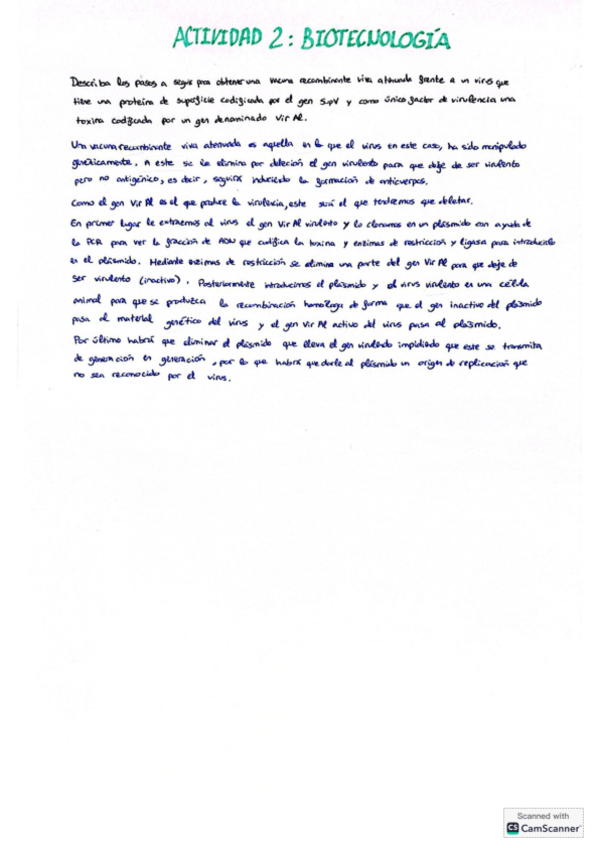 ACTIVIDAD 2: BIOTECNOLOGÍA
Describa los pasos a seguir para obtener una vacuna recombinante viva atenuada frente a un virus que
tiene una proteína de superficie codificada por el gen SupV y como único factor de virulencia una
toxina codificada por un gen denominado Vir Al.
Una vacuna recombinante viva atenuada es aquella en la que el virus en este caso, ha sido manipulado
genéticamente. A este se le elimina por deleción el gen virulento para que deje de ser virulento
pero no antigénico, es decir, seguirá induciendo la formación de anticuerpos.
Como el gen Vir Al es el que produce la virulencia, este será el que tendremos que deletar.
En primer lugar le extraemos al virus el gen Vir Al virulento y lo clonamos en un plásmido con ayuda de
la PCR para ver la fracción de ADN que codifica la toxina y enzimas de restricción y ligasa para introducirlo
en el plásmido. Mediante enzimas de restricción se elimina una parte del gen Vir Al para que deje de
ser virulento (inactivo). Posteriormente introducimos el plásmido y el virus virulento en una célula
animal para que se produzca la recombinación homóloga de forma que el gen inactivo del plásmido
pasa al material genético del virus y el gen Vir Al activo del virus pasa al plásmido.
Por último habrá que eliminar el plásmido que lleva el gen virulento impidiendo que este se transmita
de generación en generación, por lo que habrá que darle al plásmido un origen de replicación que
no sea reconocido por el virus.
Scanned with
CS CamScanner